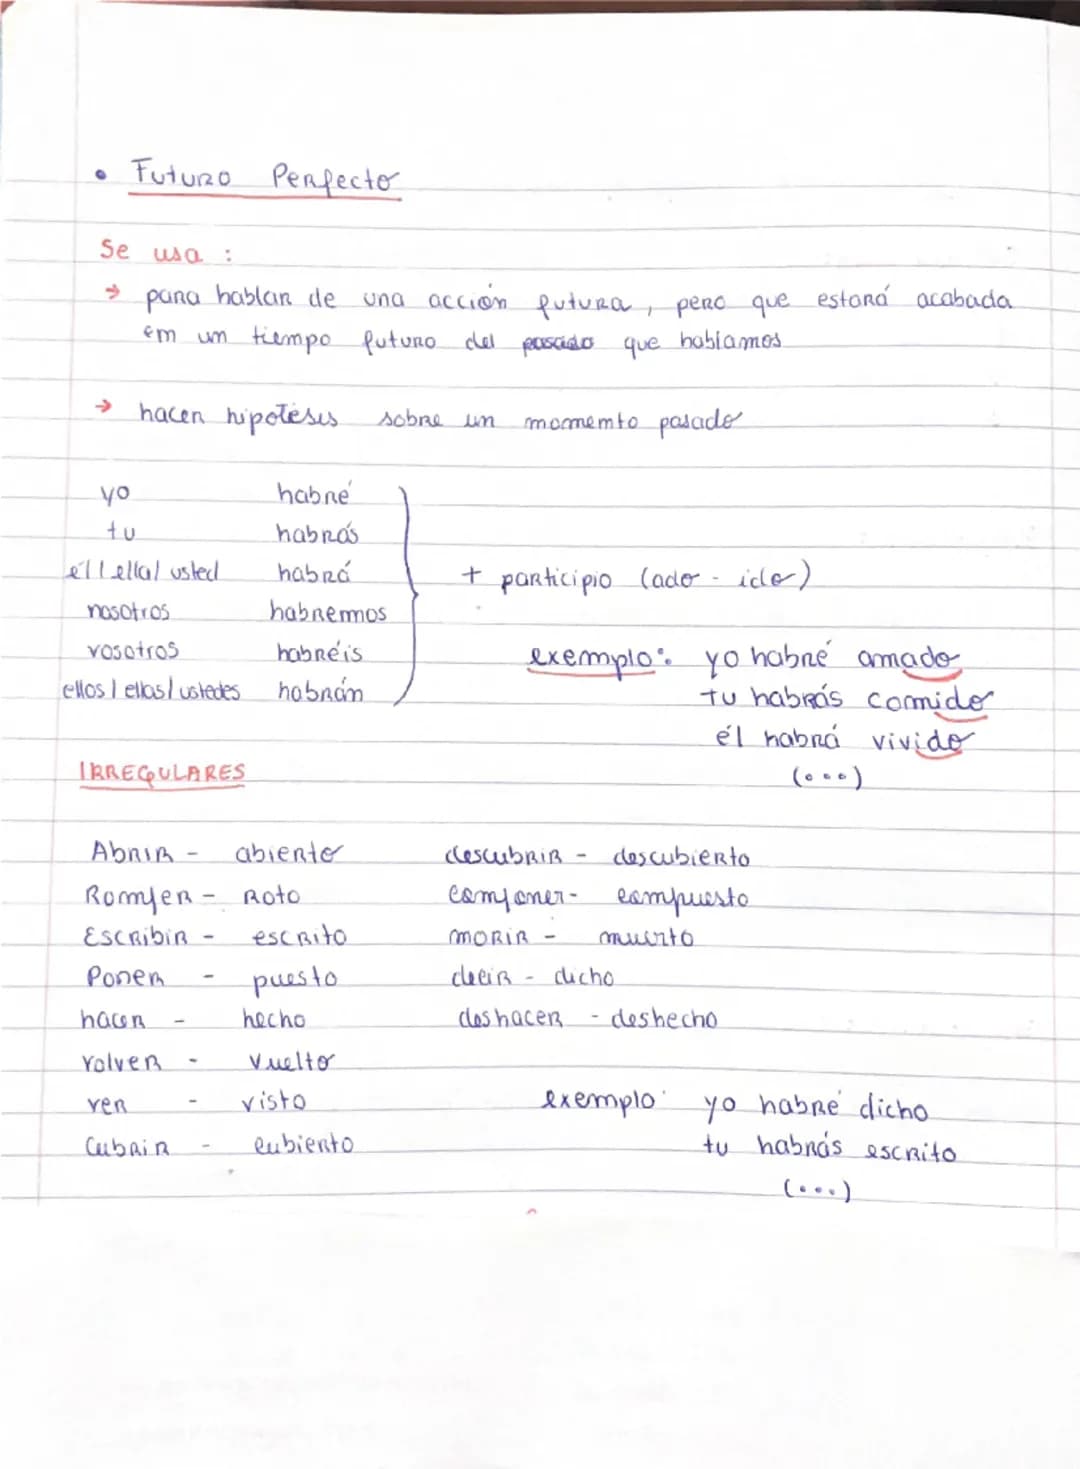 • Futuro Perfecto
Se usa :
→ para hablar de una acción futura, pero que estará acabada
em um tiempo futuro del pasado que hablamos
→ hacer hipotésis sobre un momemto pasado
yo habré
tu habrás
él / ella / usted habrá + participio (ado - ido)
nosotros habremos
vosotros habréis exemplo: yo habré amado
ellos / ellas / ustedes habrán tu habrás comido
él habrá vivido
(...)
IRREGULARES
Abrir - abierto descubrir - descubierto
Romper - Roto componer - compuesto
Escribir - escrito morir - muerto
Poner - puesto decir - dicho
hacer - hecho deshacer - deshecho
volver - vuelto
ver - visto exemplo: yo habré dicho
Cubrir - cubierto tu habrás escrito
(...)